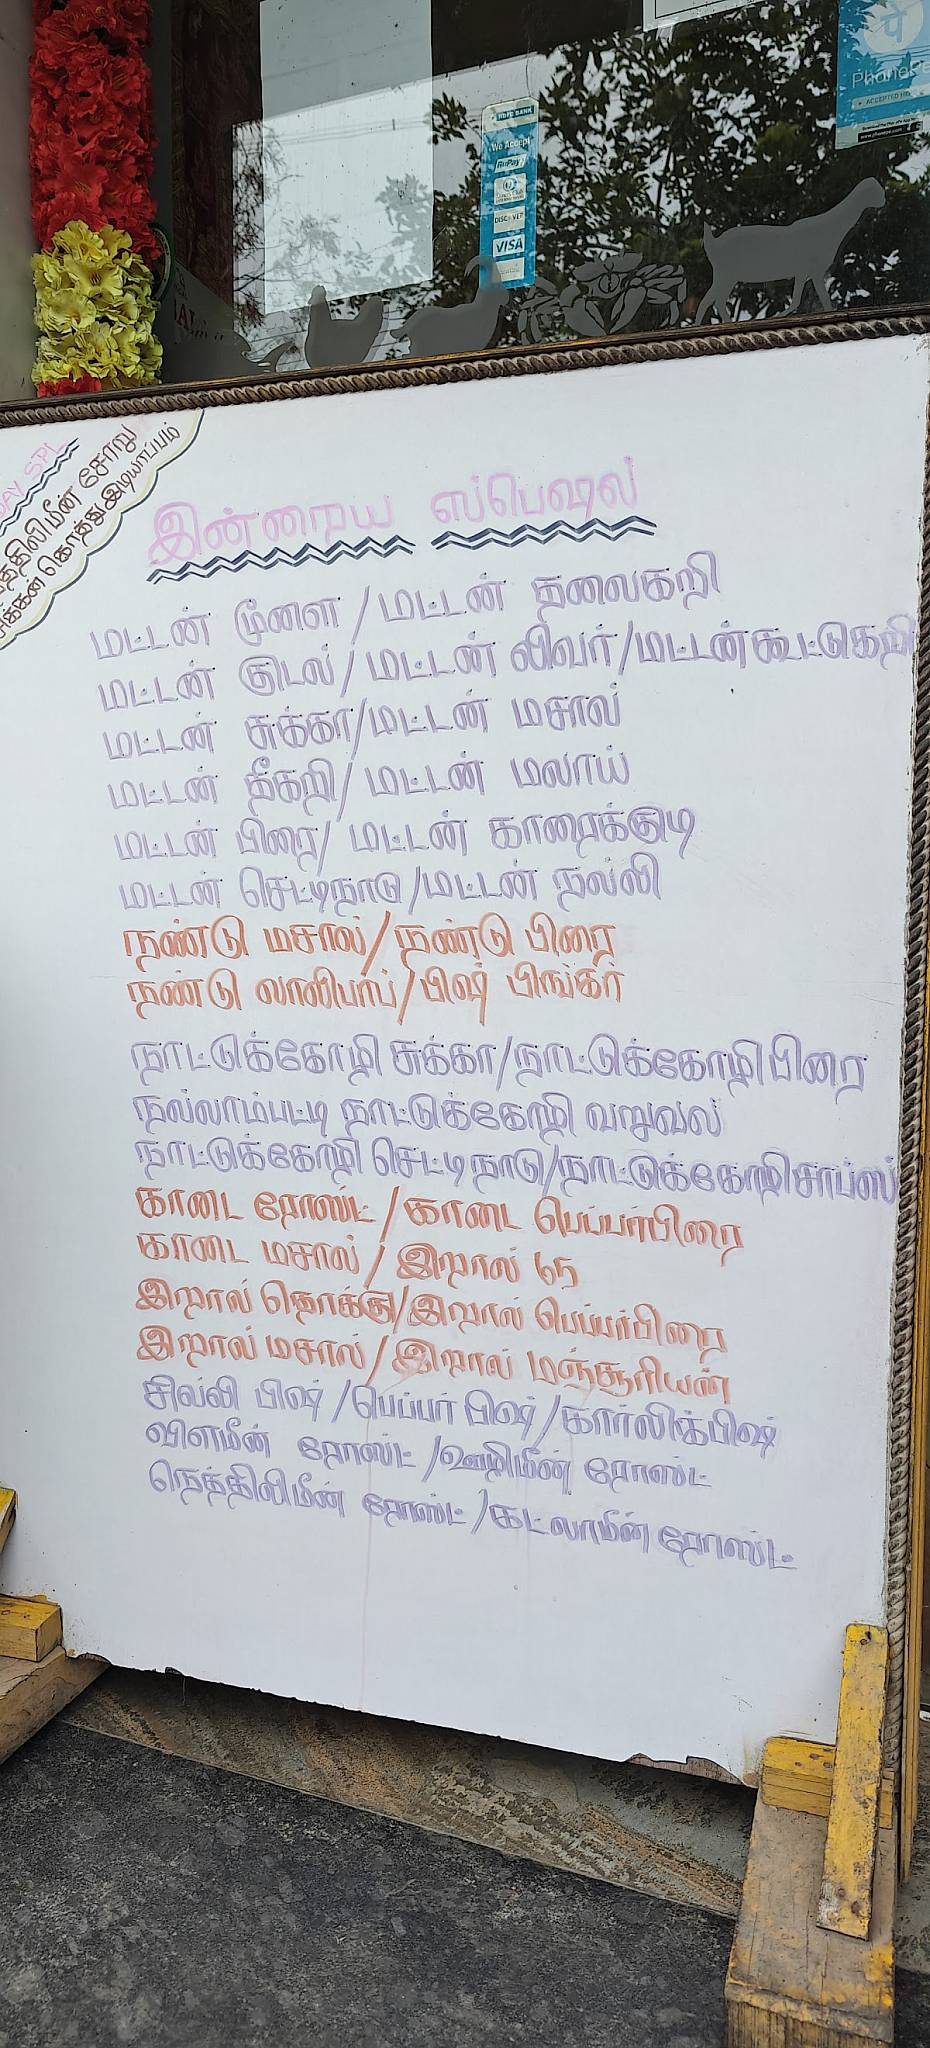 HDFC BANK
We Accept
RuPay
DISCOVER
VISA
PhonePe
ACCEPTED HERE
www.phonepe.com
DAY SPL
நெத்திலிமீன் சோறு
சிக்கன் கொத்து இடியாப்பம்
இன்றைய ஸ்பெஷல்
மட்டன் மூளை / மட்டன் தலைகறி
மட்டன் குடல் / மட்டன் லிவர் / மட்டன்கூட்டுகறி
மட்டன் சுக்கா / மட்டன் மசால்
மட்டன் தீகறி / மட்டன் மலாய்
மட்டன் பிரை / மட்டன் காரைக்குடி
மட்டன் செட்டிநாடு / மட்டன் நல்லி
நண்டு மசால் / நண்டு பிரை
நண்டு லாலிபாப் / பிஷ் பிங்கர்
நாட்டுக்கோழி சுக்கா / நாட்டுக்கோழி பிரை
நல்லாம்பட்டி நாட்டுக்கோழி வறுவல்
நாட்டுக்கோழி செட்டிநாடு / நாட்டுக்கோழி சாப்ஸ்
காடை ரோஸ்ட் / காடை பெப்பர்பிரை
காடை மசால் / இறால் 65
இறால் தொக்கு / இறால் பெப்பர்பிரை
இறால் மசால் / இறால் மஞ்சூரியன்
சில்லி பிஷ் / பெப்பர் பிஷ் / கார்லிக்பிஷ்
விளமீன் ரோஸ்ட் / ஊழிமீன் ரோஸ்ட்
நெத்திலிமீன் ரோஸ்ட் / கட்லாமீன் ரோஸ்ட்